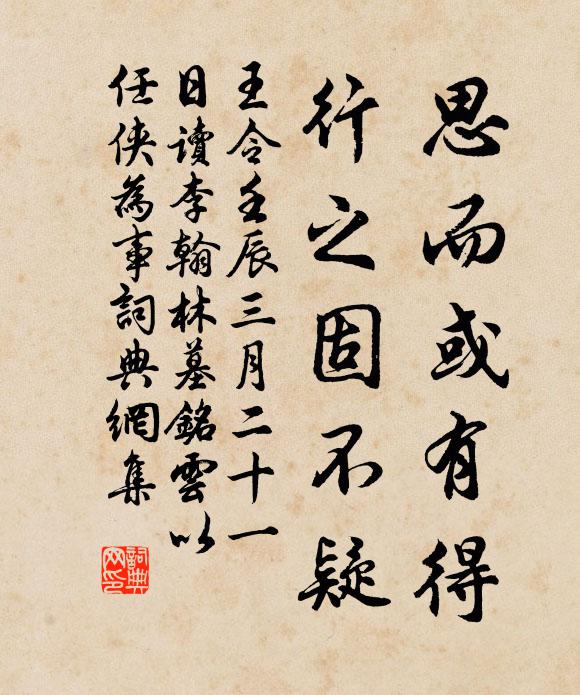 思而或有得
行之固不疑
王令壬辰三月二十一
日讀李翰林墓銘雲以
任俠為事詞典網集
詞典
网印